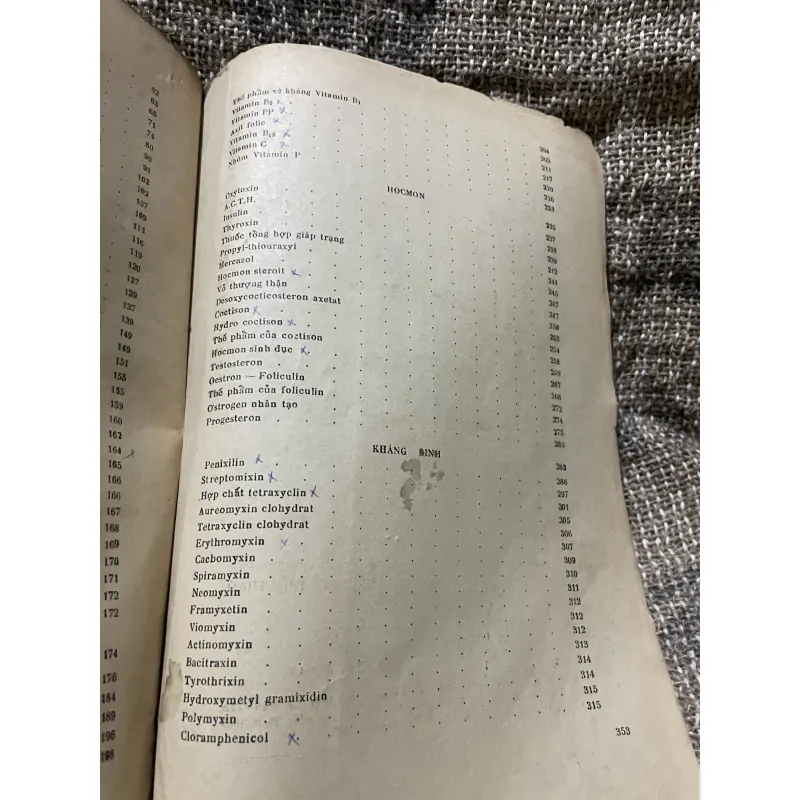 62
63
65
71
74
80
90
91
102
103
107
109
111
116
119
120
127
129
137
139
149
149
151
155
155
159
160
162
164 x
165
166
166
167
168
169
170
171
172
172
174
176
184
189
196
198
Thế phẩm và kháng Vitamin B1
Vitamin B2 x
Vitamin PP x
Axit folic x
Vitamin B12 x 204
Vitamin C x 205
Nhóm Vitamin P 211
217
220
HOCMON 226
Oxytoxin 233
A.C.T.H.
Insulin 235
Thyroxin 237
Thuốc tổng hợp giáp trạng 238
Propyl-thiouraxyl 239
Mercazol 242
Hocmon steroit x 244
Vỏ thượng thận 245
Desoxycocticosteron axetat 247
Coctison x 247
Hydro coctison x 250
Thế phẩm của coctison 253
Hocmon sinh dục x 254
Testosteron 258
Oestron — Foliculin 259
Thế phẩm của foliculin 267
Ơstrogen nhân tạo 268
Progesteron 272
274
275
283
KHÁNG SINH
Penixilin x 283
Streptomixin x 286
Hợp chất tetraxyclin x 297
Aureomyxin clohydrat 301
Tetraxyclin clohydrat 305
Erythromyxin x 306
Cacbomyxin 307
Spiramyxin 309
Neomyxin 310
Framyxetin 311
Viomyxin 312
Actinomyxin 312
Bacitraxin 312
Tyrothrixin 313
Hydroxymetyl gramixidin 314
Polymyxin 314
Cloramphenicol x 315
315
353